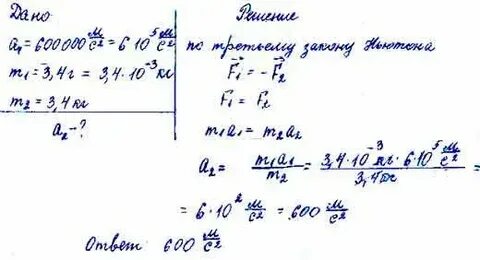 Дано
a₁=600 000 м/с² = 6·10⁵ м/с²
m₁ = 3,4г = 3,4·10⁻³ кг
m₂ = 3,4 кг
a₂ - ?
Решение
по третьему закону Ньютона
F⃗₁ = -F⃗₂
F₁ = F₂
m₁a₁ = m₂a₂
a₂ = m₁a₁/m₂ = 3,4·10⁻³ кг · 6·10⁵ м/с² / 3,4кг =
= 6·10² м/с² = 600 м/с²
Ответ 600 м/с²